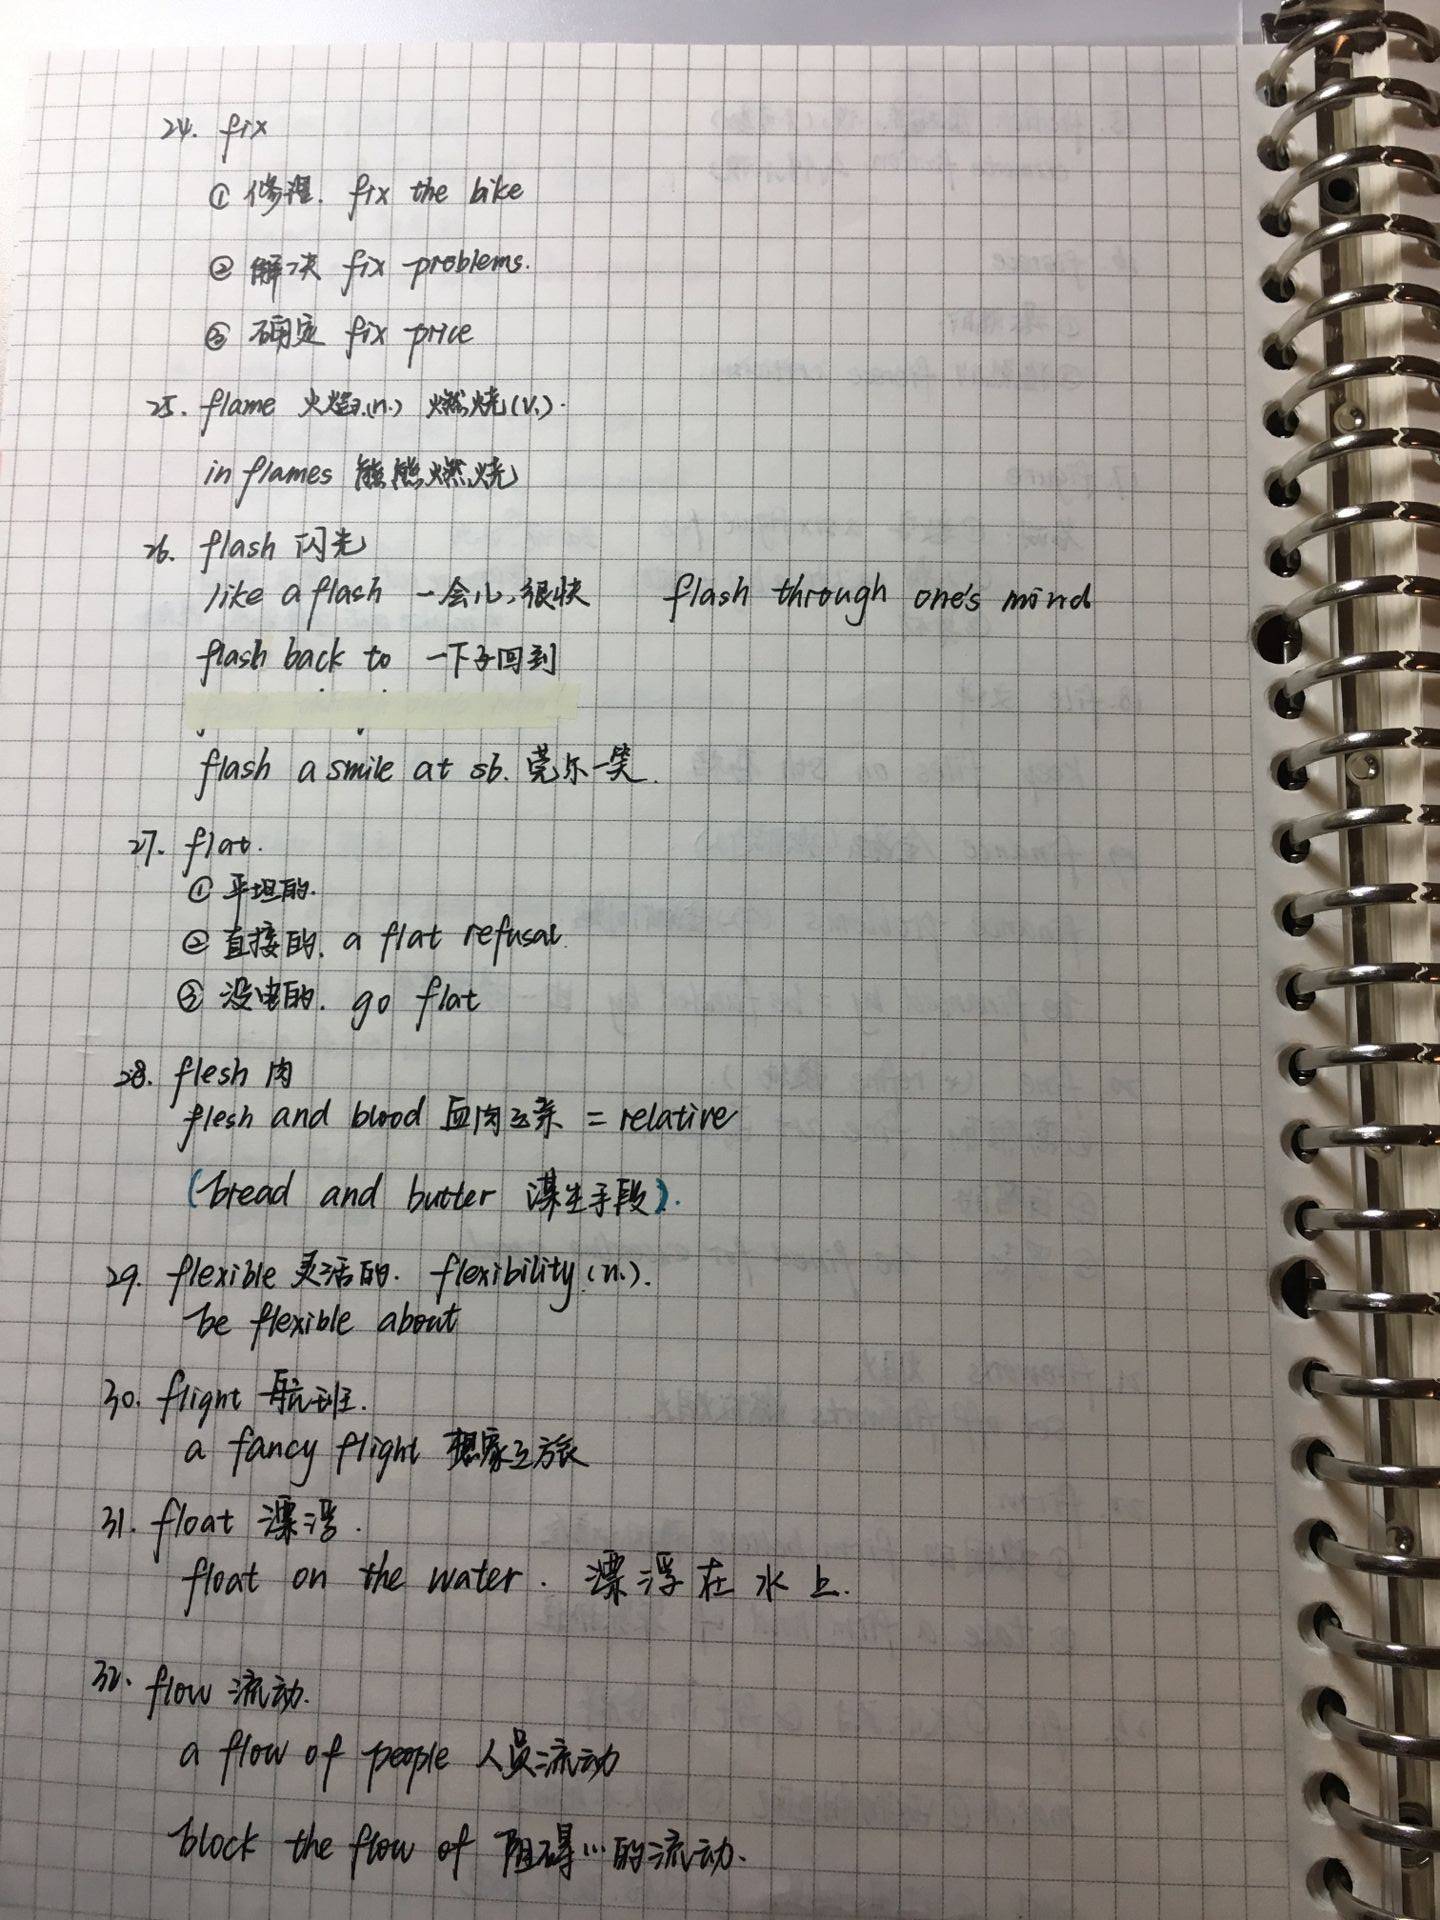 24. fix
① 修理. fix the bike
② 解决 fix problems.
③ 确定 fix price
25. flame 火焰.(n.) 燃烧(v.).
in flames 熊熊燃烧
26. flash 闪光
like a flash 一会儿,很快 flash through one's mind
flash back to 一下子回到
flash a smile at sb. 莞尔一笑.
27. flat.
① 平坦的.
② 直接的. a flat refusal.
③ 没电的. go flat
28. flesh 肉
flesh and blood 血肉之亲 = relative
(bread and butter 谋生手段).
29. flexible 灵活的. flexibility.(n.).
be flexible about
30. flight 航班.
a fancy flight 想象之旅
31. float 漂浮.
float on the water. 漂浮在水上.
32. flow 流动.
a flow of people 人员流动
block the flow of 阻碍…的流动.